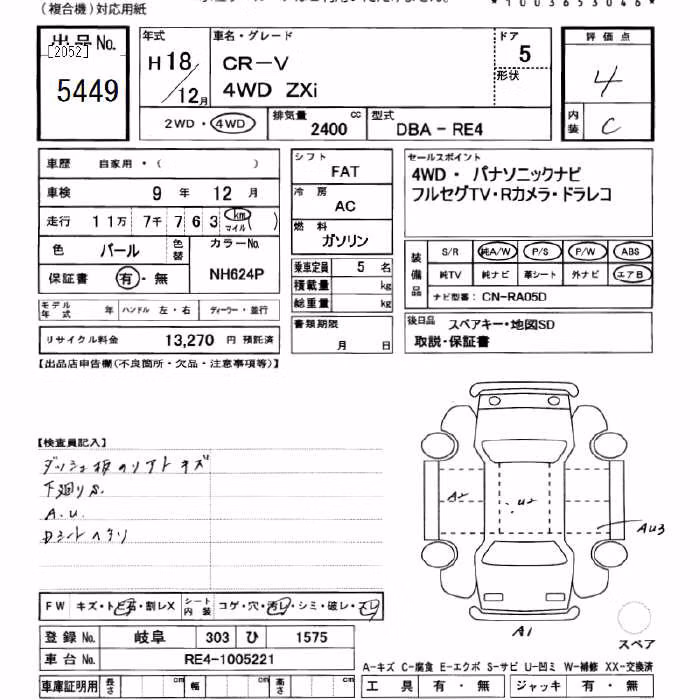 (複合機)対応用紙
*1003653046*
出品No.
[2052]
5449
年式
H18/12月
車名・グレード
CR-V
4WD ZXi
ドア
5
形状
評価点
4
内装
C
2WD・4WD
排気量
2400 cc
型式
DBA-RE4
車歴 自家用・( )
車検 9年 12月
走行 11万 7千 763 km マイル ( )
色 パール 色替
カラーNo.
NH624P
保証書 有・無
モデル年式 年 ハンドル 左・右 ディーラー・並行
リサイクル料金 13,270円 預託済
シフト
FAT
冷房
AC
燃料
ガソリン
乗車定員 5名
積載量 kg
総重量 kg
書類期限
月 日
セールスポイント
4WD・ パナソニックナビ
フルセグTV・Rカメラ・ドラレコ
装備品
S/R 純A/W P/S P/W ABS
純TV 純ナビ 革シート 外ナビ エアB
ナビ型番: CN-RA05D
後日品 スペアキー・地図SD
取説・保証書
【出品店申告欄(不良箇所・欠品・注意事項等)】
【検査員記入】
キズ
下廻りS.
A.U.
A2
U2
AU3
A1
スペア
FW キズ・トビ石・割レX
シート内装 コゲ・穴・汚レ・シミ・破レ・スレ
登録No. 岐阜 303 ひ 1575
車台No. RE4-1005221
車庫証明用 長さ cm 幅 cm 高さ cm
A-キズ C-腐食 E-エクボ S-サビ U-凹ミ W-補修 XX-交換済
工具 有・無 ジャッキ 有・無